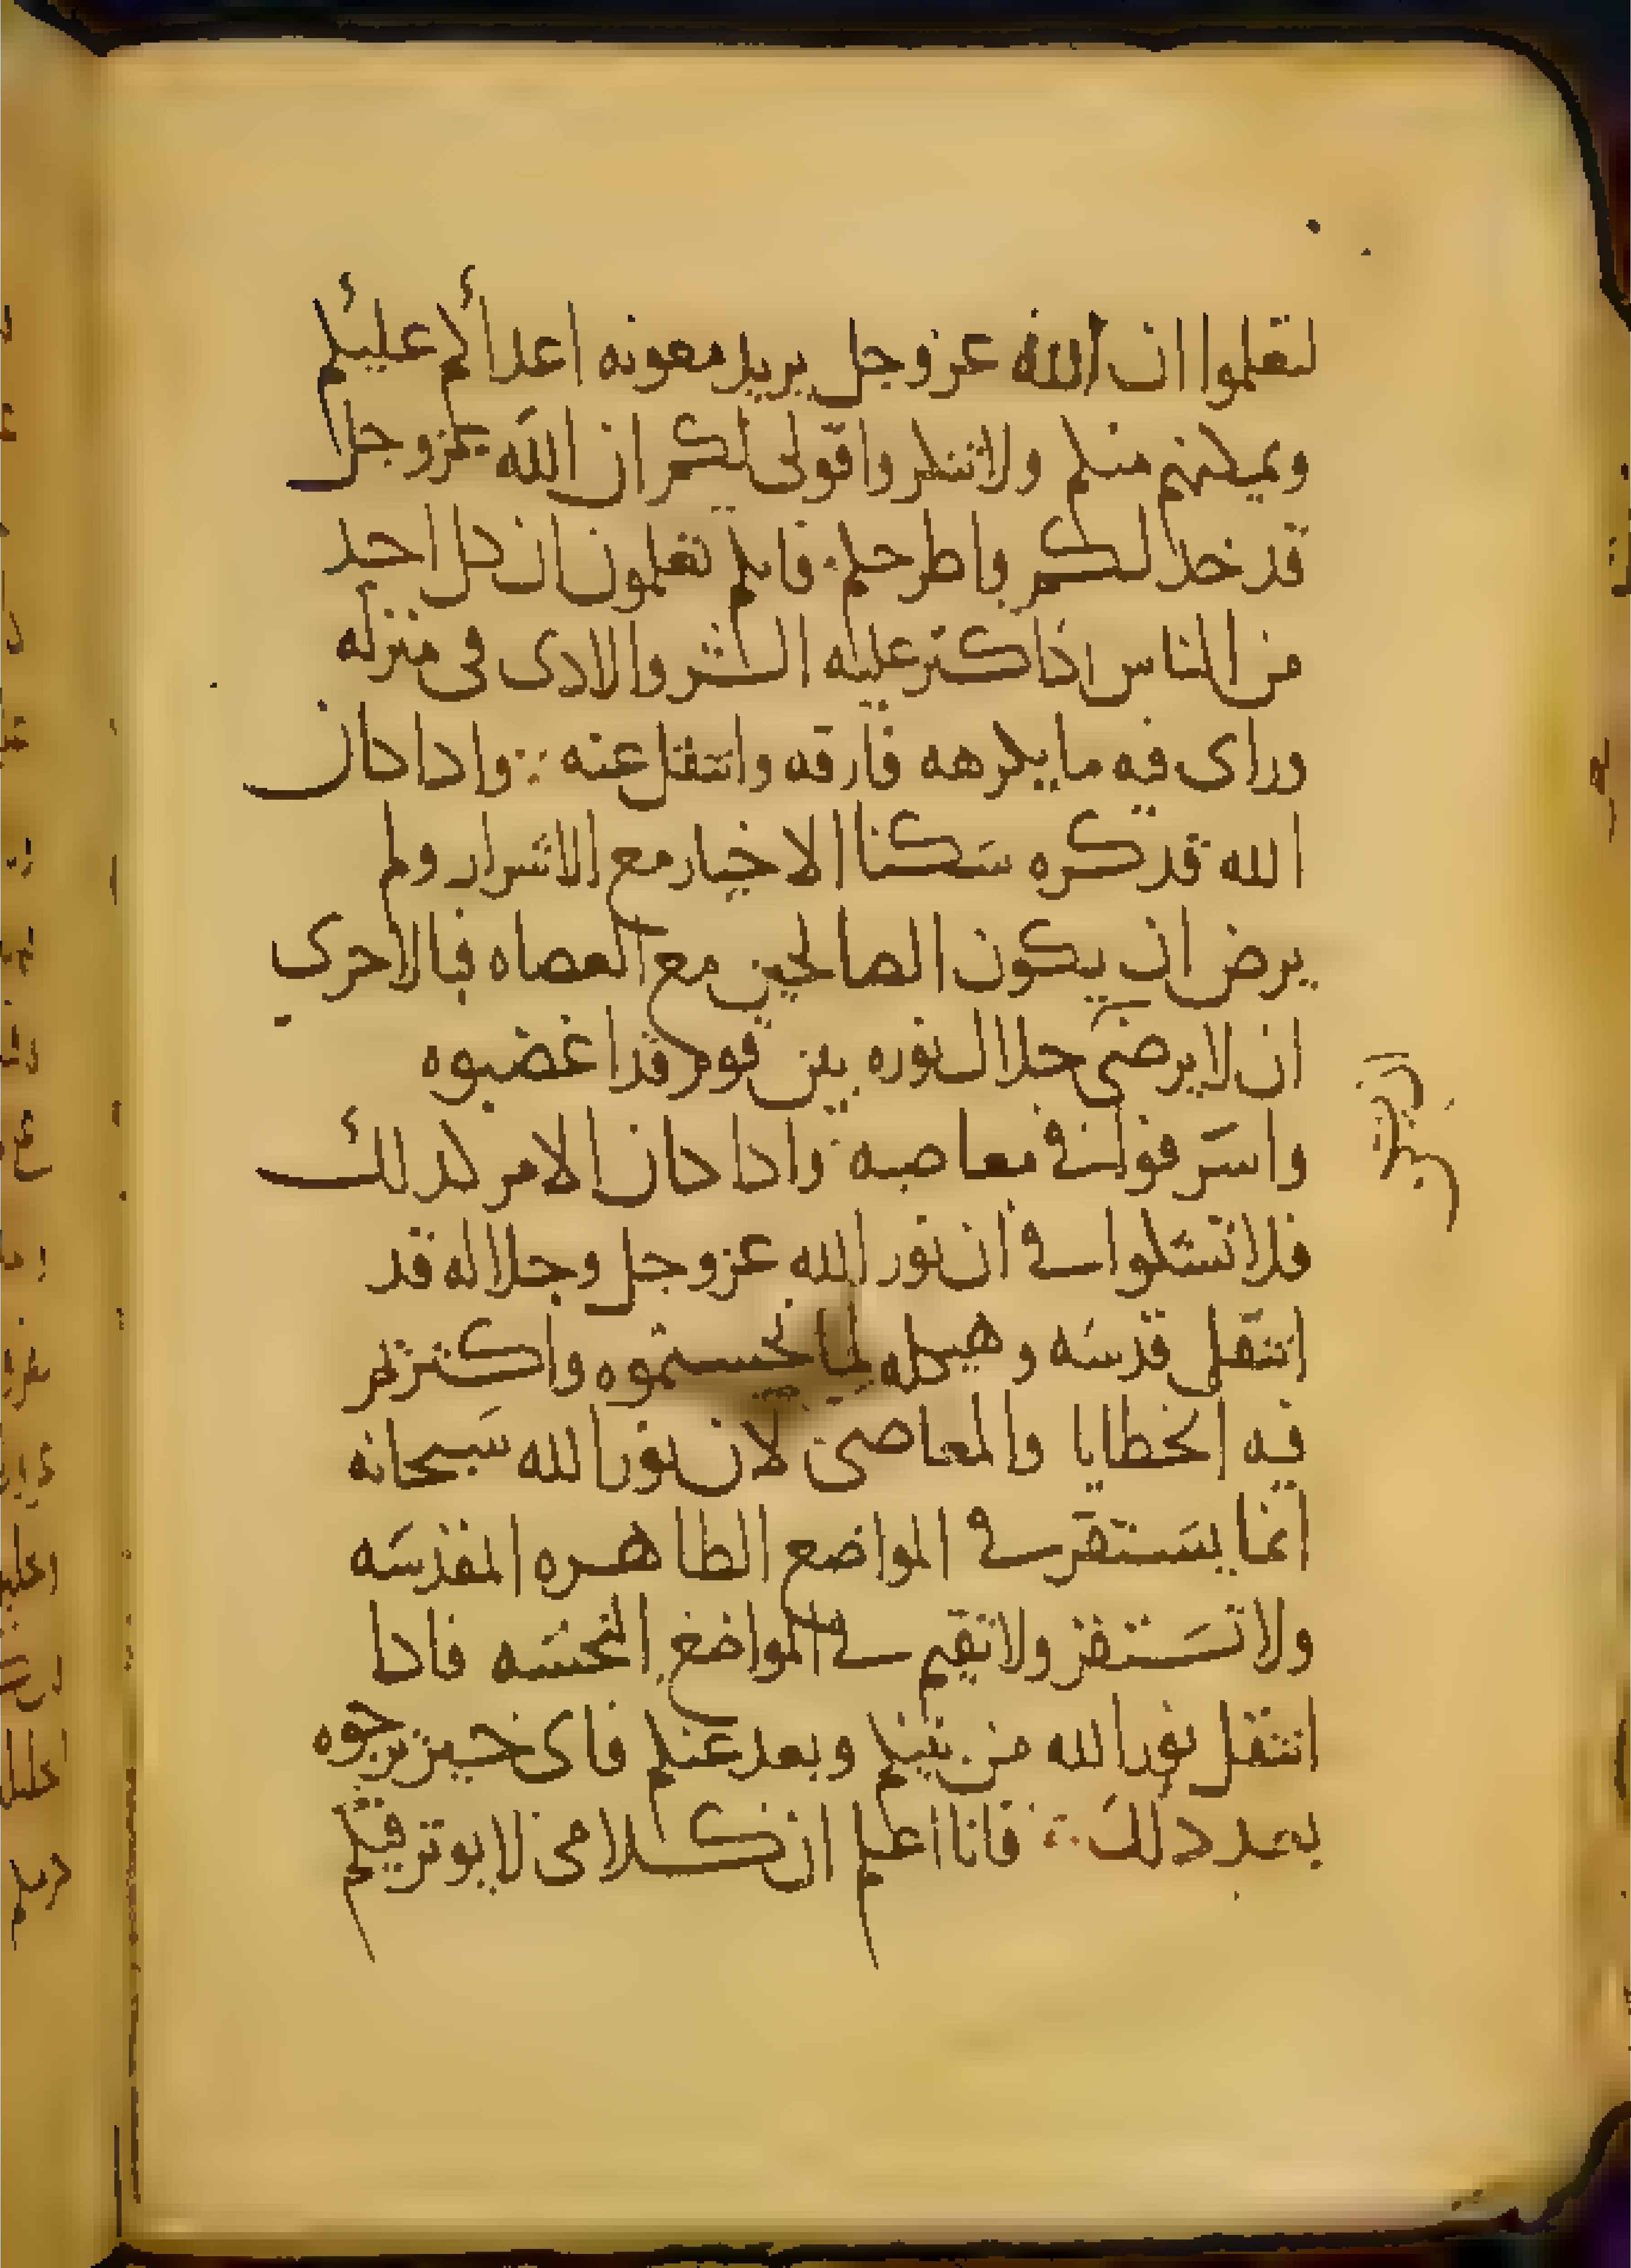 لتعلموا ان الله عز وجل يريد معونه اعدائكم عليكم
ويمكنهم منكم ولا تنكروا قولى لكم ان الله عز وجل
قد خذلكم واطرحكم فانكم تعلمون ان كل احد
من الناس اذا كتر عليه الشر والادى فى منزله
وراى فيه ما يكرهه فارقه وانتقل عنه واداكان
الله قد كره سكنا الاخيار مع الاشرار ولم
يرض ان يكون الصالحين مع العصاه فبالاحرى
ان لا يرضى حلال نوره بين قوم قد اغضبوه
واسرفوا فى معاصيه وادا كان الامر كدلك
فلا تشكوا فى ان نور الله عز وجل وجلاله قد
انتقل قدسه وهيكله لما نجستموه واكترتم
فيه الخطايا والمعاصى لان نور الله سبحانه
انما يستقر فى المواضع الطاهره المقدسه
ولا تستقر ولا تقيم فى المواضع النجسه فادا
انتقل نور الله من بينكم وبعد عنكم فاى خير ترجوه
بعد دلك فانا اعلم ان كلامى لا يوتر فيكم